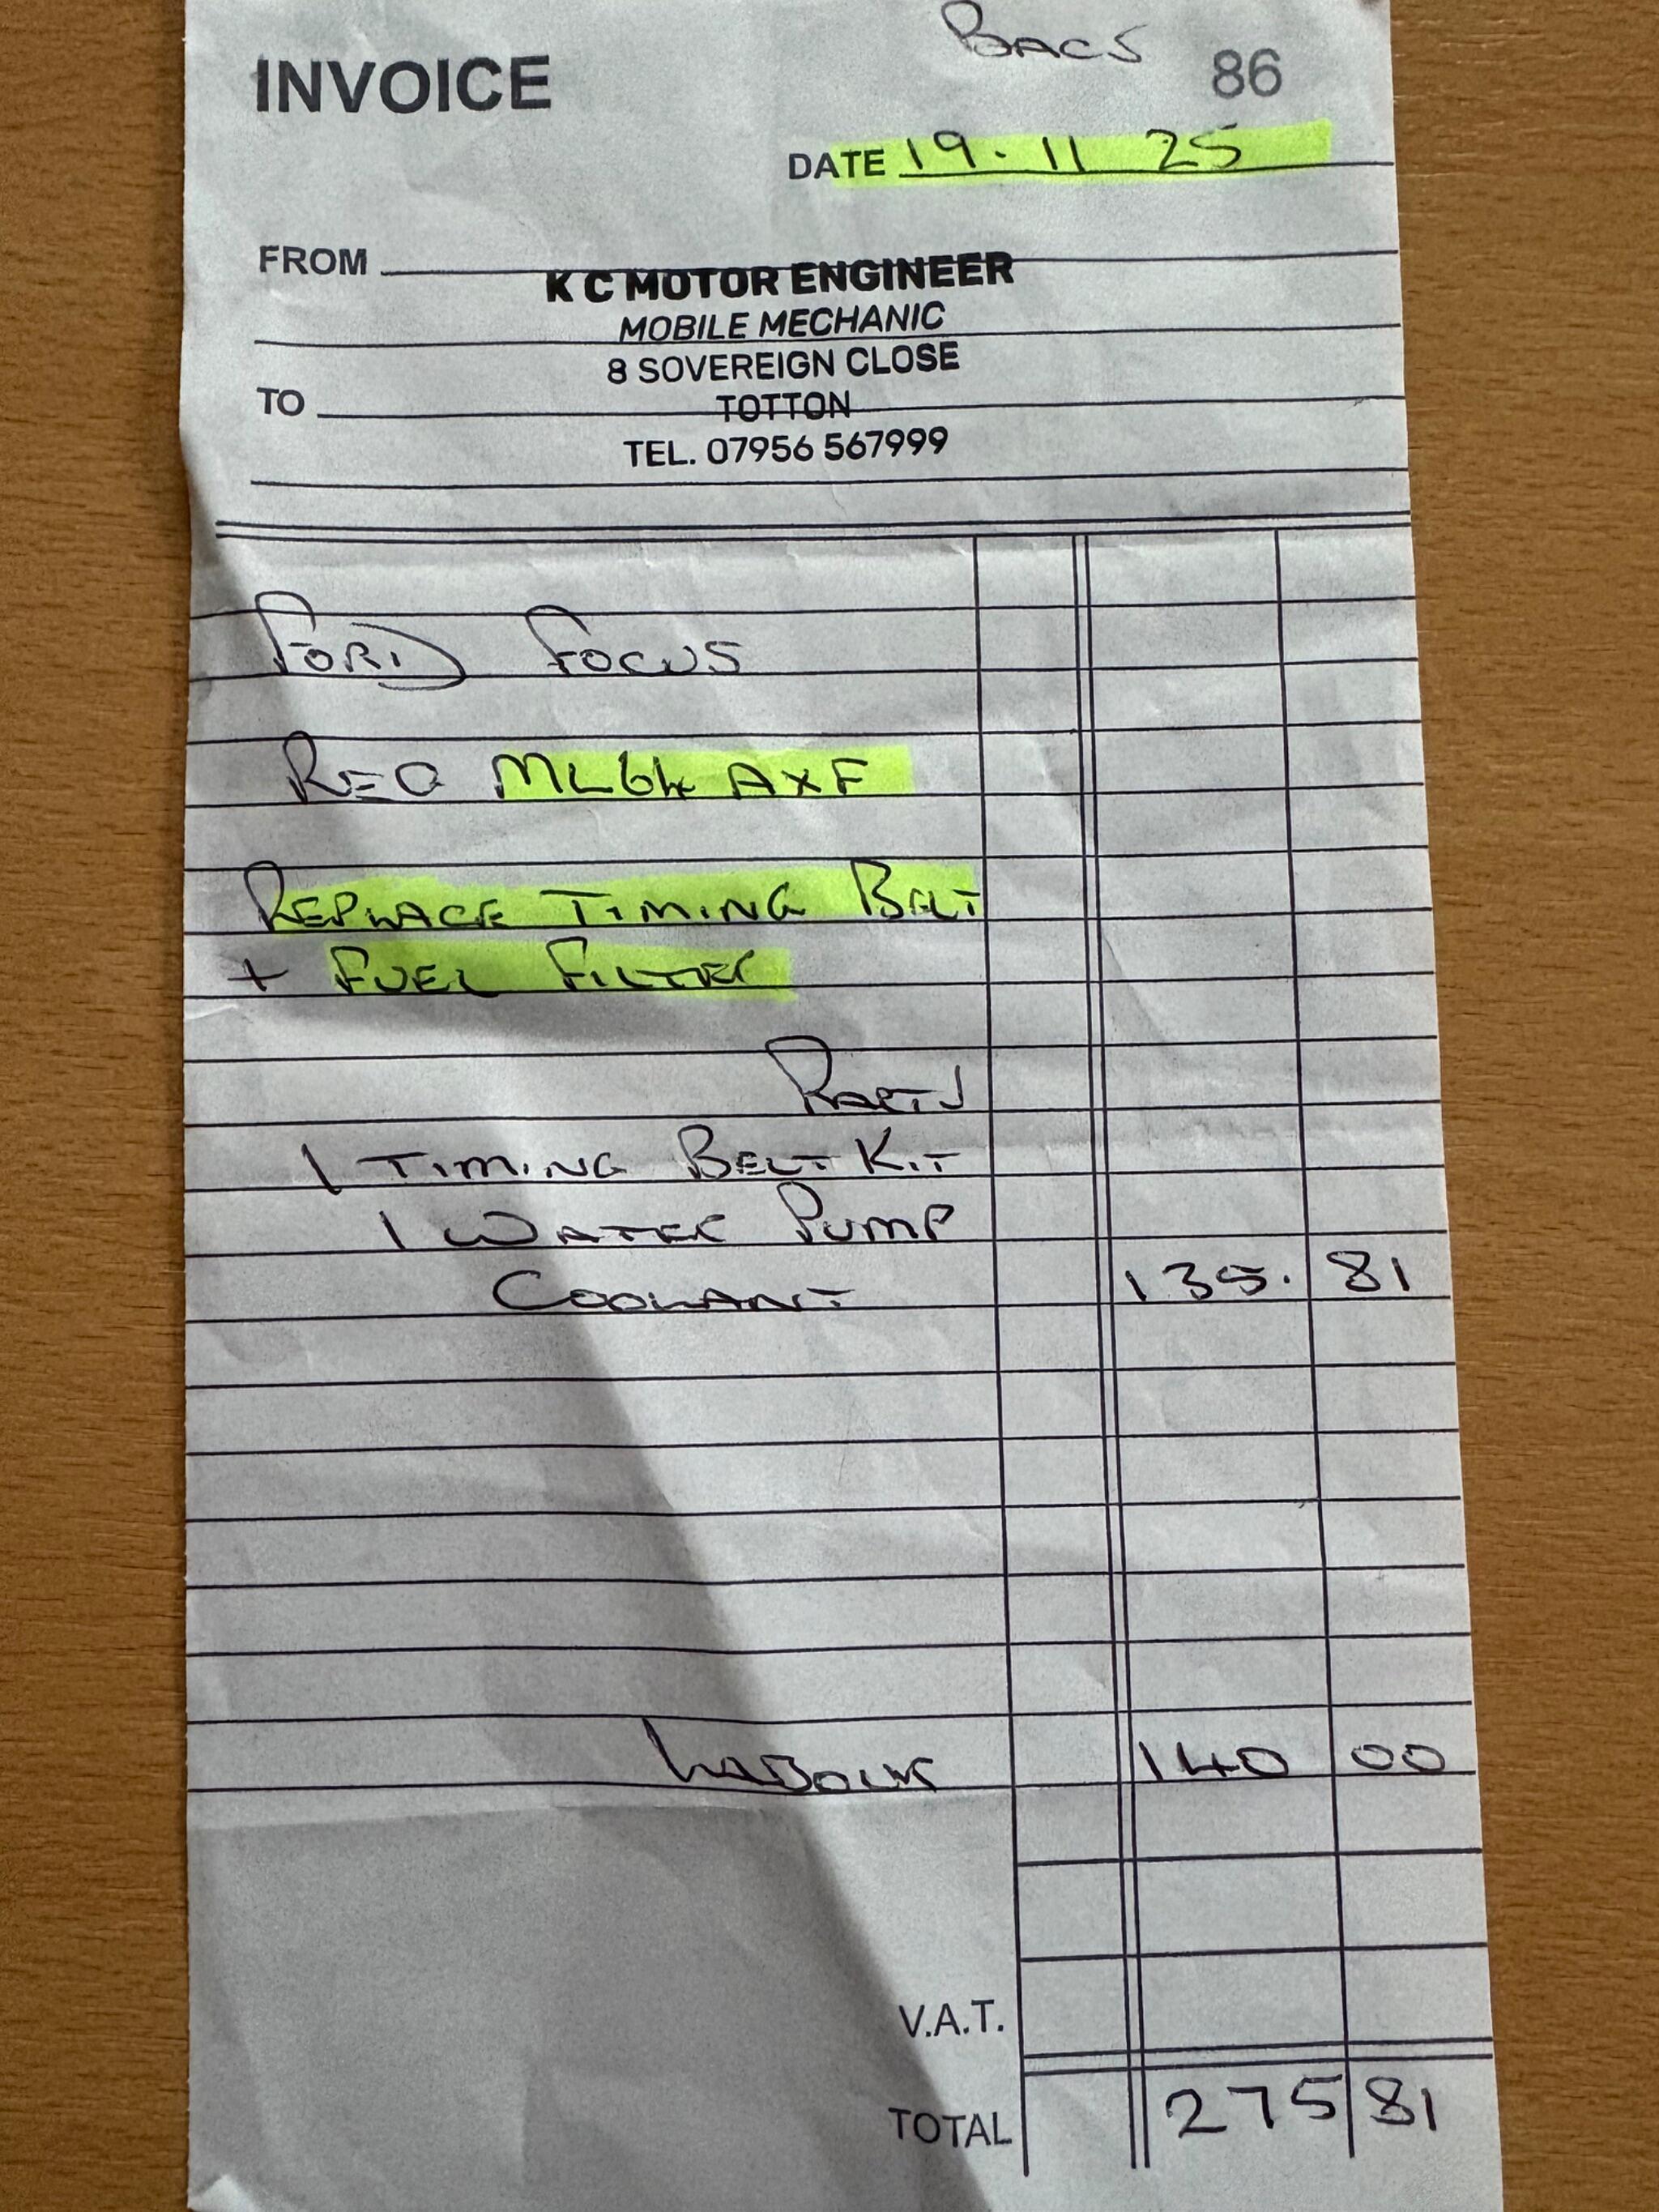 BACS
INVOICE 86
DATE 19.11 25
FROM
K C MOTOR ENGINEER
MOBILE MECHANIC
8 SOVEREIGN CLOSE
TO
TOTTON
TEL. 07956 567999
FORD FOCUS
REG ML64 AXF
REPLACE TIMING BELT
+ FUEL FILTER
PARTS
1 TIMING BELT KIT
1 WATER PUMP
COOLANT 135. 81
LABOUR 140 00
V.A.T.
TOTAL 275 81